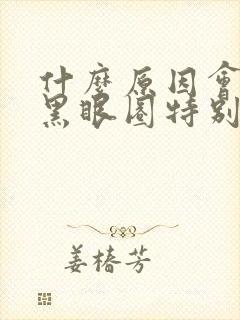 什麼原因會
黑眼圈特別
姜椿芳